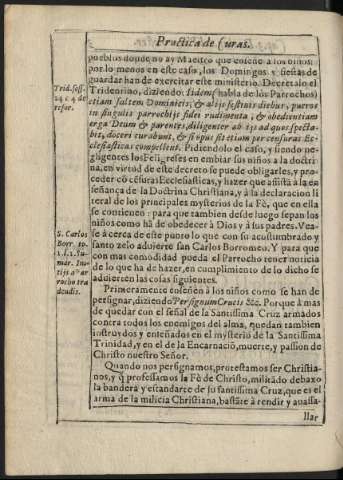 Practica de Curas.
pueblos donde no ay Maestro que enseñe a los niños:
por lo menos en este caso, los Domingos y fiestas de
guardar han de exercitar este ministerio. Decretalo el
Tridentino, diziendo: Iidem (habla de los Parrochos)
etiam saltem Dominicis, & alijs festiuis diebus, pueros
in singulis parrochijs fidei rudimenta, & obedientiam
erga Deum & parentes, diligenter ab ijs ad quos specta-
bit, doceri curabunt, & si opus sit etiam per censuras Ec-
clesiasticas compellent. Pidiendolo el caso, y siendo ne-
gligentes los Feligreses en embiar sus niños a la doctri
na, en virtud de este decreto se puede obligarles, y pro-
ceder cō cēsuras Ecclesiasticas, y hazer que assistã a la en
señança de la Doctrina Christiana, y à la declaracion li
teral de los principales mysterios de la Fè, que en ella
se contienen: para que tambien desde luego sepan los
niños como hã de obedecer à Dios y à sus padres. Vea-
se à cerca de este punto lo que con su acostumbrado y
santo zelo aduierte san Carlos Borromeo. Y para que
con mas comodidad pueda el Parrocho tener noticia
de lo que ha de hazer, en cumplimiento de lo dicho se
aduierten las cosas siguientes.
Primeramente enseñen à los niños como se han de
persignar, diziendo Per signum Crucis &c. Porque à mas
de quedar con el señal de la Santissima Cruz armados
contra todos los enemigos del alma, quedan tambien
instruydos y enseñados en el mysterio de la Santissima
Trinidad, y en el de la Encarnaciō, muerte, y passion de
Christo nuestro Señor.
Quando nos persignamos, protestamos ser Christia-
nos, y q̃ professamos la Fè de Christo, militãdo debaxo
la bandera y estandarte de su santissima Cruz, que es el
arma de la milicia Christiana, bastãte à rendir y auassa-
llar
Trid. sess.
24 c 4 de
refor.
S. Carlos
Borr. to.